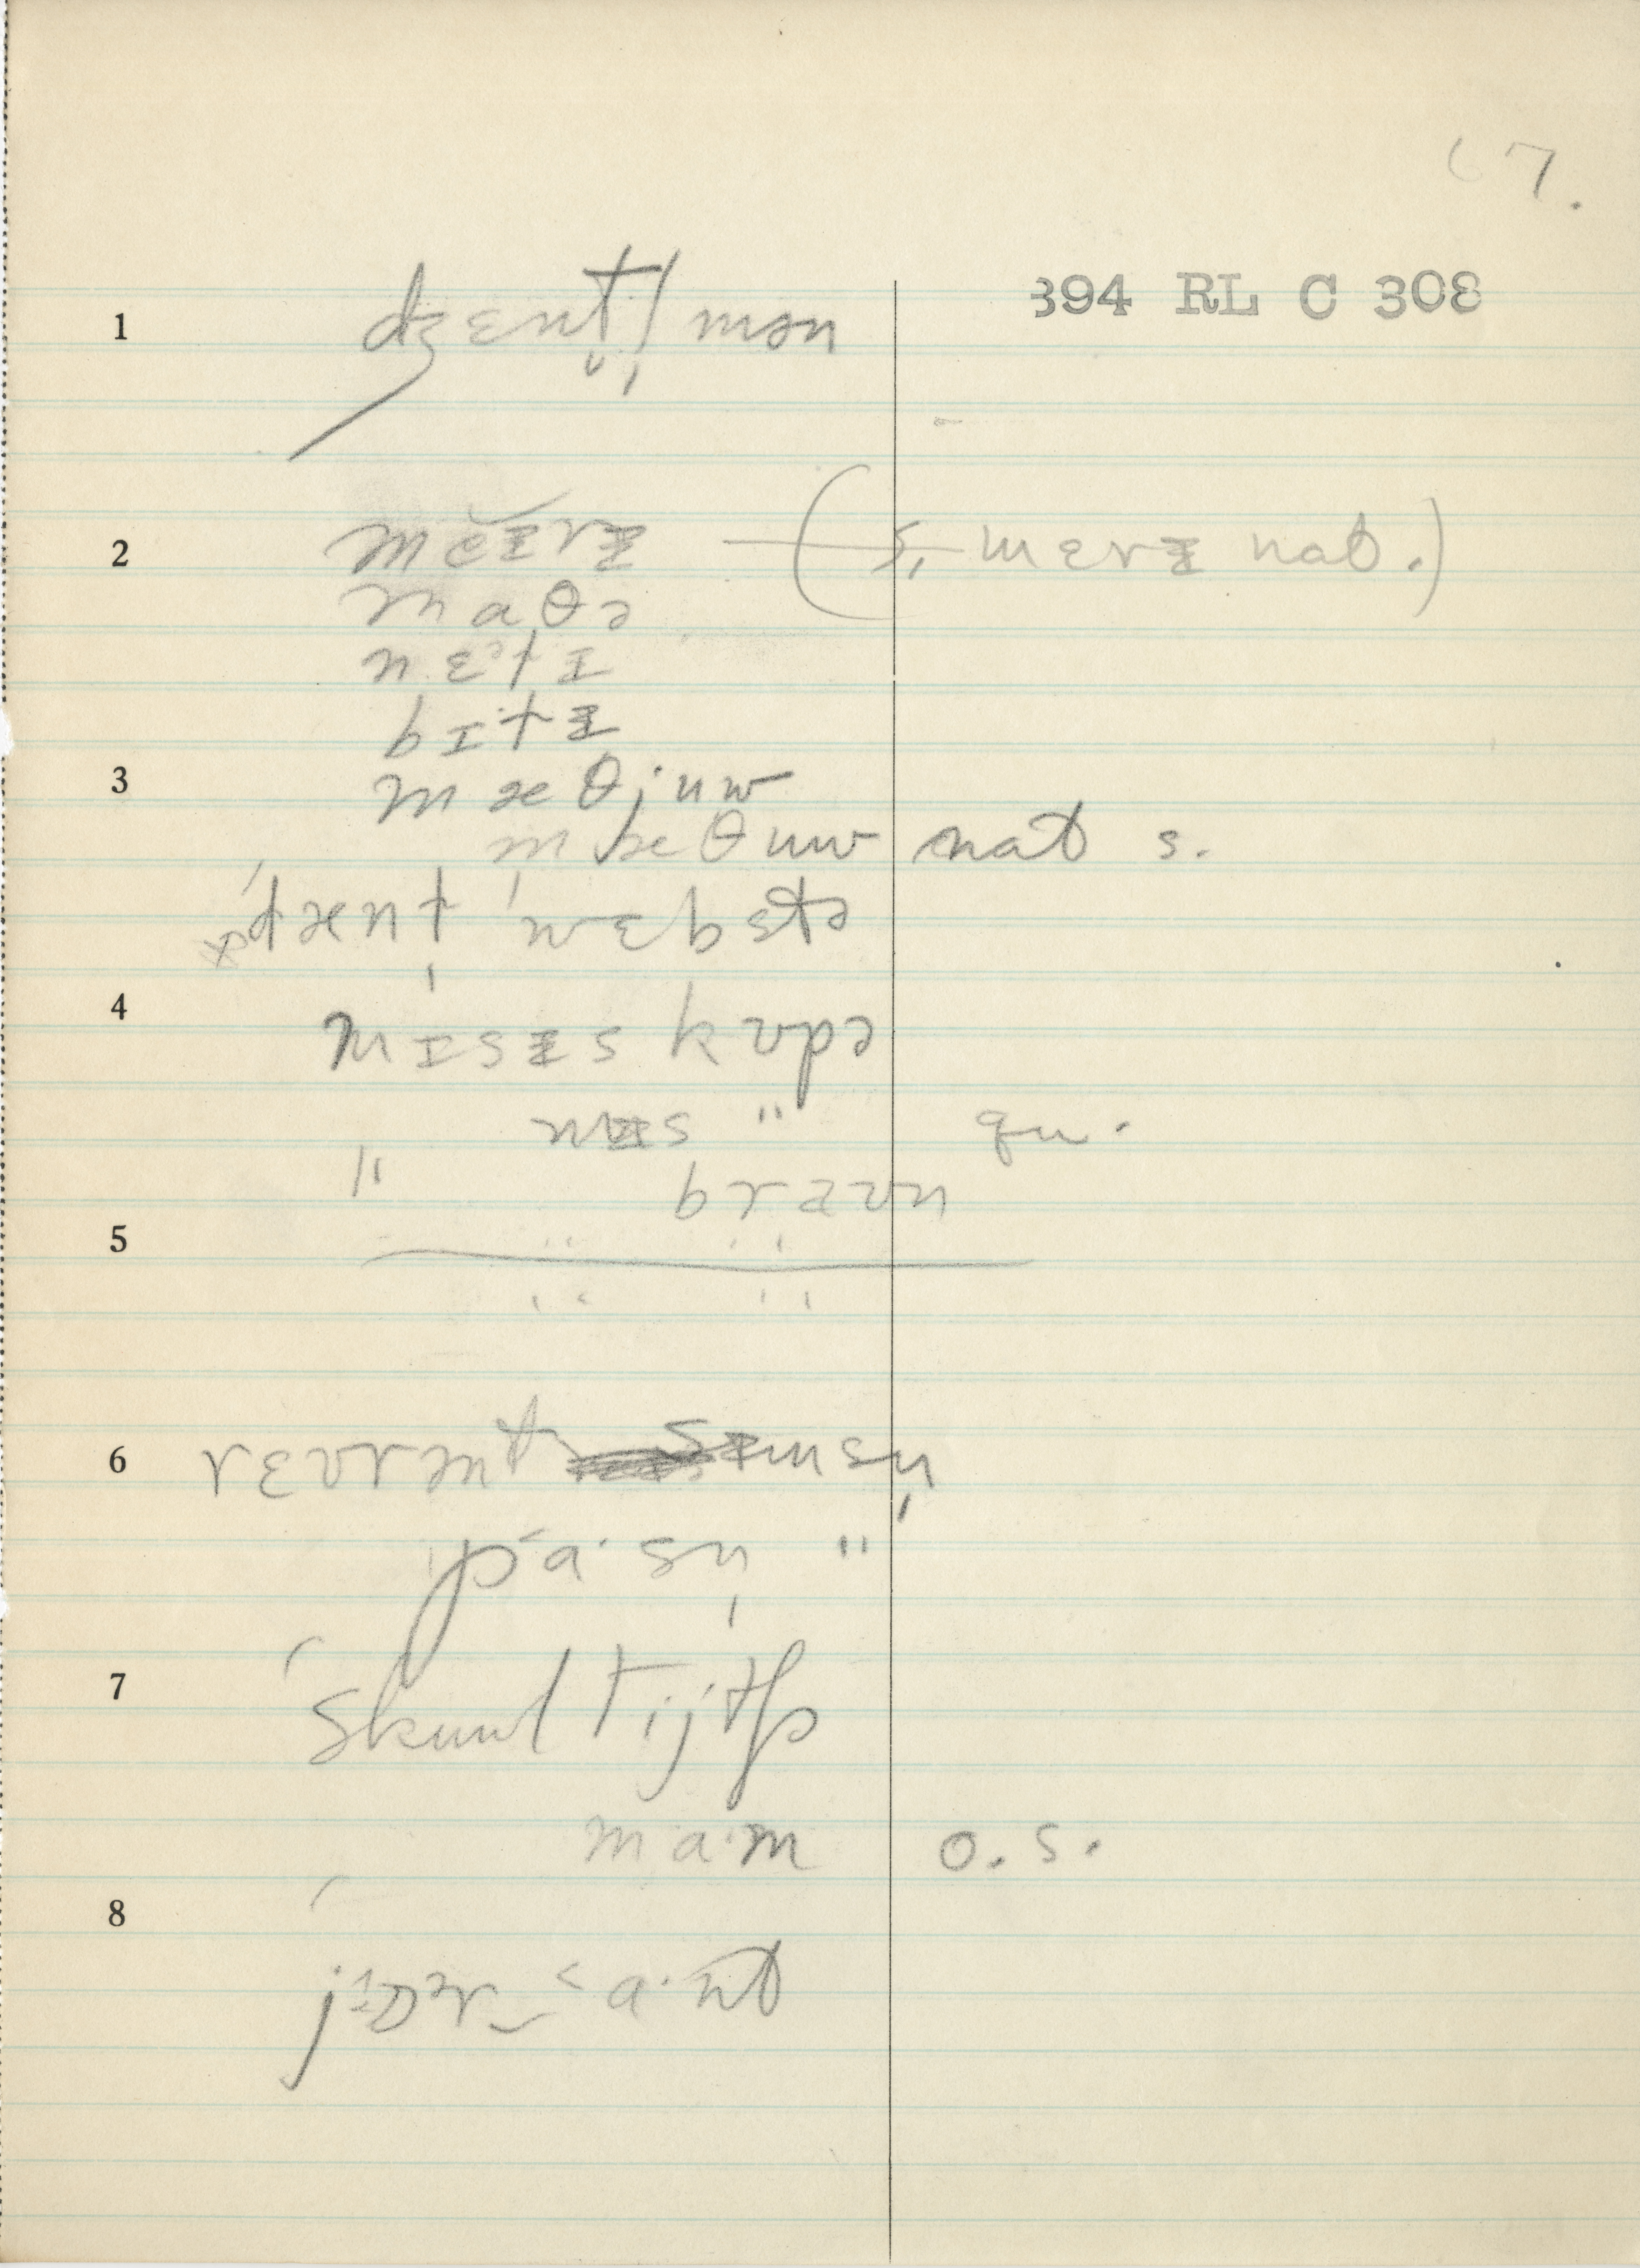 67.
394 RL C 308
1 dʒɛnt̬l̩mən
2 mĕɪrɨ — (s, mɛrɨ nat.)
maθə
nɛᵊtɪ
bɪtɨ
3 mæθjuw
mæθuw nat s.
ˈdænl̩ ˈwɛbstə
4 mɪsɨs kʊpə
mɨs " qu.
" braʊn
5
6 rɛvrənt sɪmsn̩
pa·sn̩ "
7 ˈskuwl tijtʃɚ
ma·m o.s.
8